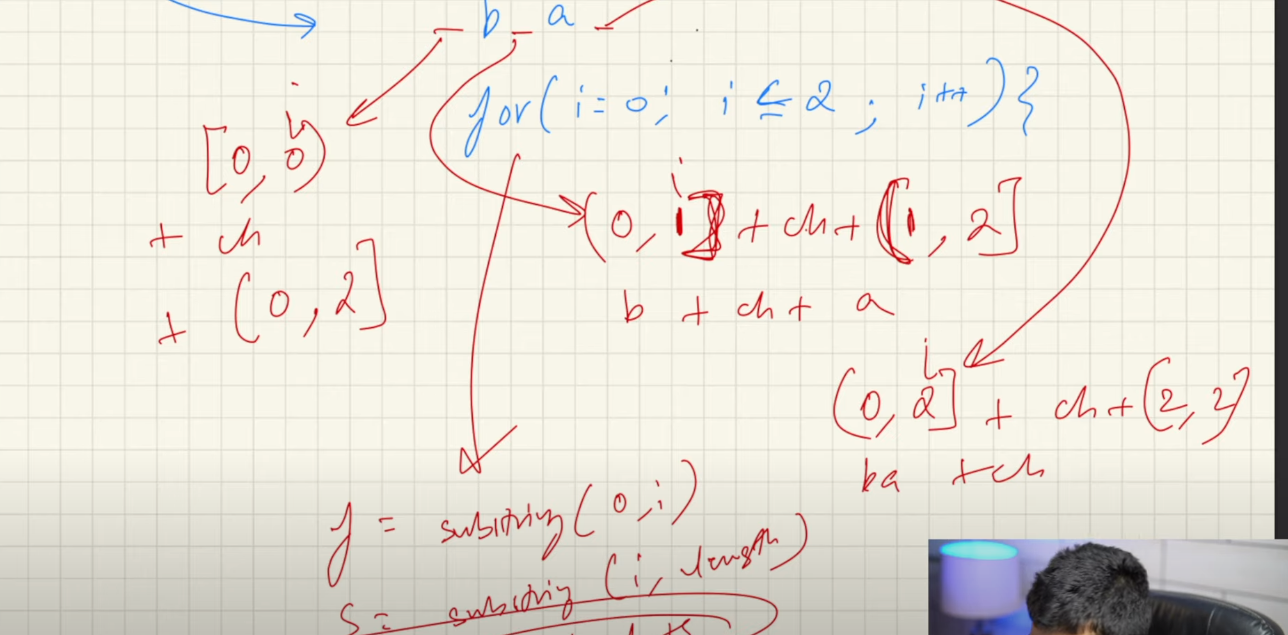 _ b _ a _
for(i=0; i ≤ 2 ; i++){
i
[0, 0)
+ ch
+ (0, 2]
i
(0, 1] + ch + [1, 2]
b + ch + a
i
(0, 2] + ch + (2, 2]
ba + ch
f = substring(0, i)
s = substring (i, length)